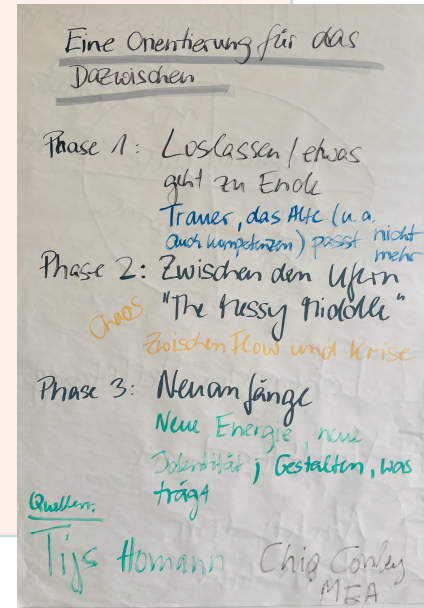 Eine Orientierung für das
Dazwischen
Phase 1: Loslassen / etwas
geht zu Ende
Trauer, das Alte (u. a.
auch Kompetenzen) passt nicht
mehr
Phase 2: Zwischen den Ufern
"The Messy Middle"
Chaos
Zwischen Flow und Krise
Phase 3: Neuanfänge
Neue Energie, neue
Identität; Gestalten, was
trägt
Quellen:
Tijs Homann Chip Conley
MEA